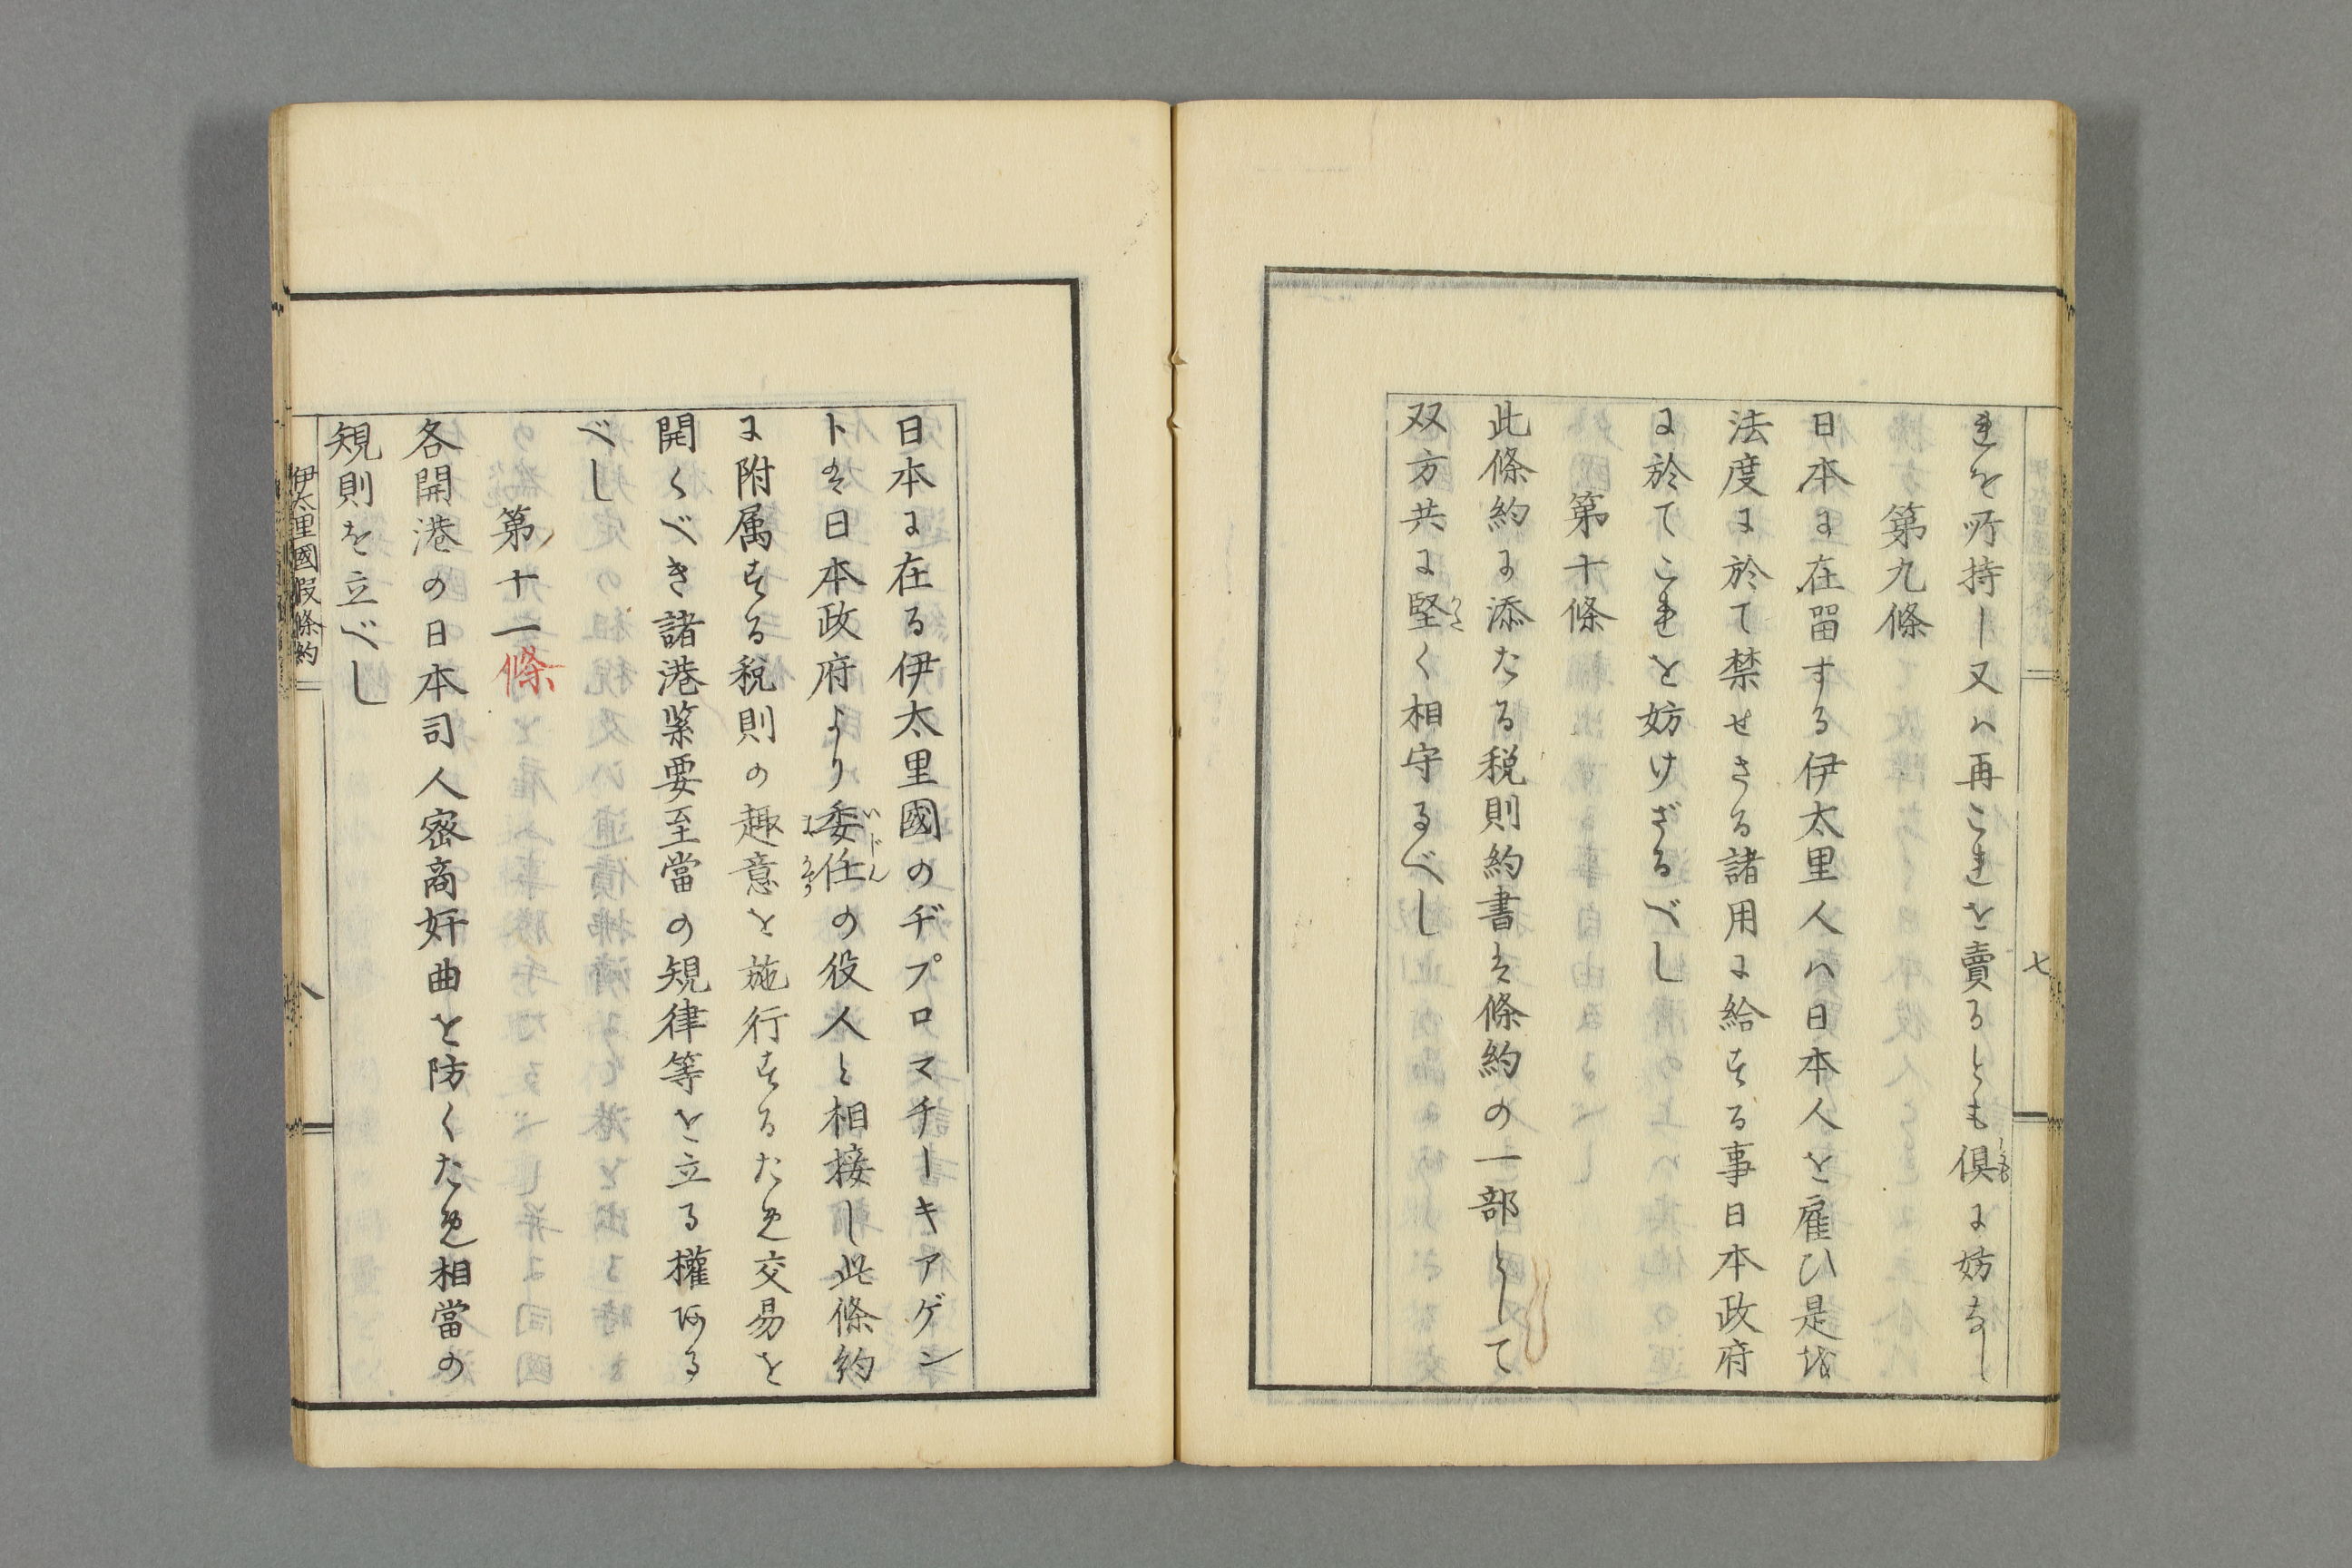 れを所持し又ハ再これを賣るとも倶に妨なし
第九條
日本に在留する伊太里人ハ日本人を雇ひ是を
法度に於て禁せさる諸用に給する事日本政府
に於てこれを妨けざるべし
第十條
此條約に添たる税則約書は條約の一部として
双方共に堅く相守るべし
七
日本に在る伊太里國のヂプロマチーキアゲン
トは日本政府より委任の役人と相接し此條約
いじん
に附属する税則の趣意を施行するため交易を
開くべき諸港緊要至當の規律等を立る權ある
べし
第十一條
各開港の日本司人密商奸曲を防くため相當の
規則を立べし
伊太里國假條約
八